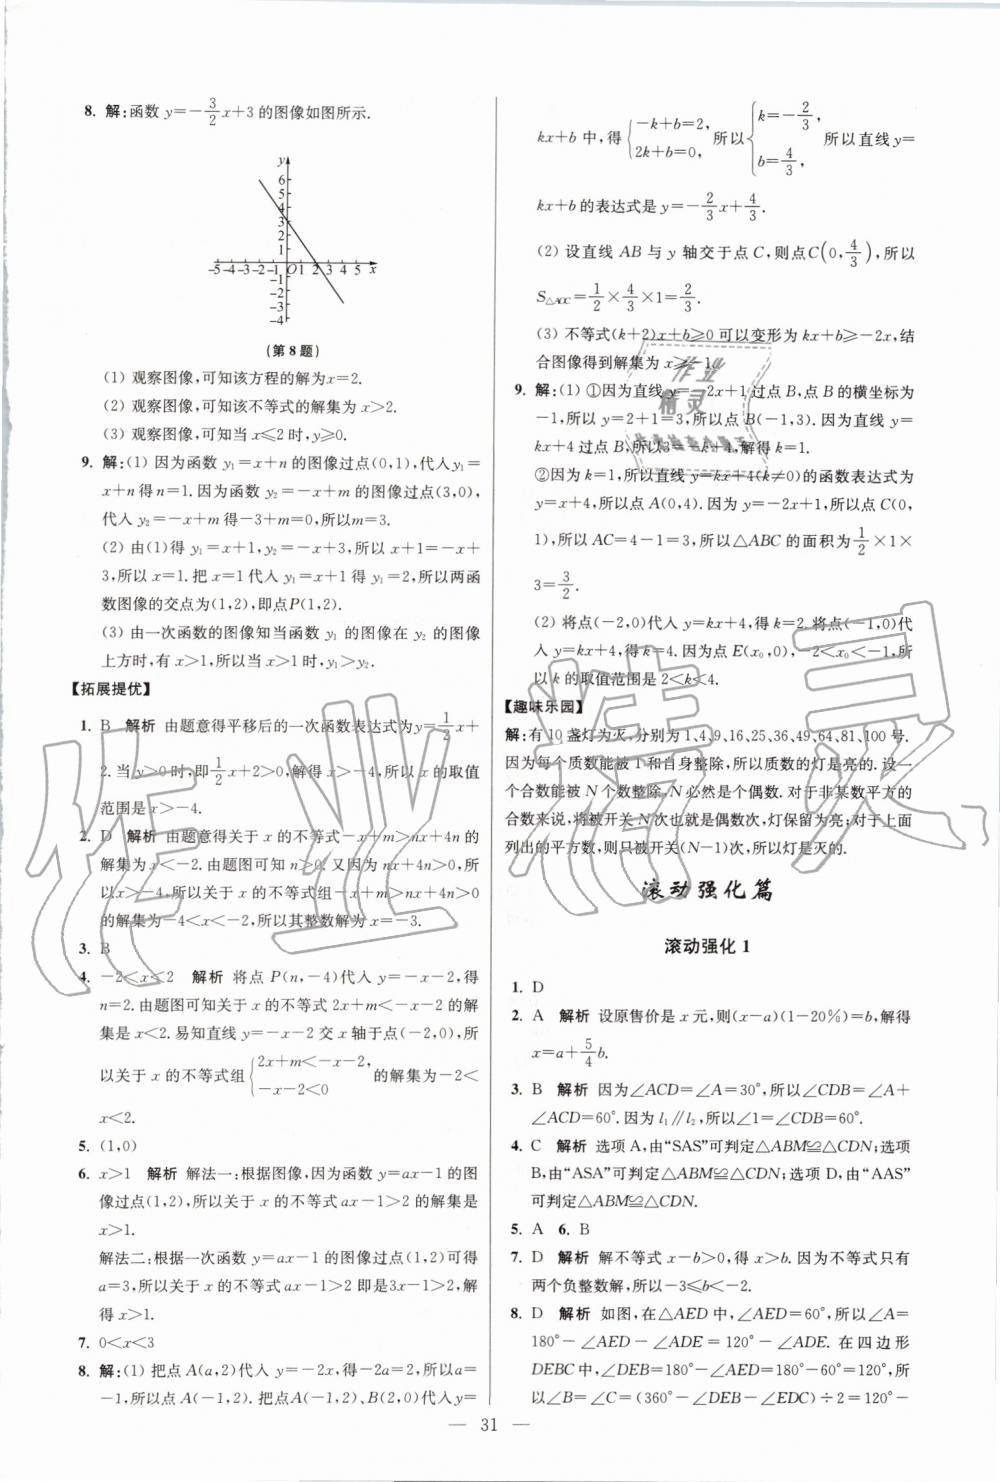 8. 解:函数 y=-3/2x+3 的图像如图所示.
y
6
5
4
3
2
1
-5 -4 -3 -2 -1 O 1 2 3 4 5 x
-1
-2
-3
-4
(第 8 题)
(1) 观察图像,可知该方程的解为x=2.
(2) 观察图像,可知该不等式的解集为 x>2.
(3) 观察图像,可知当 x≤2 时,y≥0.
9. 解:(1) 因为函数 y₁=x+n 的图像过点(0,1),代入y₁=
x+n得 n=1.因为函数 y₂=-x+m 的图像过点(3,0),
代入 y₂=-x+m 得-3+m=0,所以m=3.
(2) 由(1)得 y₁=x+1,y₂=-x+3,所以 x+1=-x+
3,所以 x=1.把 x=1 代入 y₁=x+1 得 y₁=2,所以两函
数图像的交点为(1,2),即点P(1,2).
(3) 由一次函数的图像知当函数 y₁ 的图像在 y₂ 的图像
上方时,有 x>1,所以当 x>1 时,y₁>y₂.
【拓展提优】
1. B 解析 由题意得平移后的一次函数表达式为y=1/2x+
2.当 y>0 时,即1/2x+2>0,解得 x>-4,所以 x 的取值
范围是 x>-4.
2. D 解析 由题意得关于 x 的不等式-x+m>nx+4n 的
解集为x<-2.由题图可知 n>0.又因为 nx+4n>0,所
以x>-4,所以关于 x 的不等式组-x+m>nx+4n>0
的解集为-4<x<-2,所以其整数解为 x=-3.
3. B
4. -2<x<2 解析 将点 P(n,-4)代入 y=-x-2,得
n=2.由题图可知关于 x 的不等式 2x+m<-x-2 的解
集是 x<2.易知直线 y=-x-2 交 x 轴于点(-2,0),所
以关于 x 的不等式组{2x+m<-x-2, -x-2<0 的解集为-2<
x<2.
5. (1,0)
6. x>1 解析 解法一:根据图像,因为函数 y=ax-1 的图
像过点(1,2),所以关于 x 的不等式 ax-1>2 的解集是
x>1.
解法二:根据一次函数 y=ax-1 的图像过点(1,2)可得
a=3,所以关于 x 的不等式 ax-1>2 即是3x-1>2,解
得 x>1.
7. 0<x<3
8. 解:(1) 把点 A(a,2)代入 y=-2x,得-2a=2,所以a=
-1,所以点 A(-1,2).把点A(-1,2)、B(2,0)代入 y=
kx+b 中,得{-k+b=2, 2k+b=0, 所以{k=-2/3, b=4/3, 所以直线 y=
kx+b 的表达式是 y=-2/3x+4/3.
(2) 设直线 AB 与 y 轴交于点 C,则点C(0,4/3),所以
S△AOC=1/2×4/3×1=2/3.
(3) 不等式(k+2)x+b≥0 可以变形为 kx+b≥-2x,结
合图像得到解集为 x≥-1.
9. 解:(1) ①因为直线y=-2x+1过点 B,点 B 的横坐标为
-1,所以 y=2+1=3,所以点 B(-1,3).因为直线 y=
kx+4 过点 B,所以3=-k+4,解得 k=1.
②因为 k=1,所以直线 y=kx+4(k≠0)的函数表达式为
y=x+4,所以点 A(0,4).因为 y=-2x+1,所以点 C(0,
1),所以 AC=4-1=3,所以△ABC 的面积为1/2×1×
3=3/2.
(2) 将点(-2,0)代入 y=kx+4,得 k=2.将点(-1,0)代
入 y=kx+4,得 k=4.因为点 E(x₀,0),-2<x₀<-1,所
以 k 的取值范围是 2<k<4.
【趣味乐园】
解:有 10 盏灯为灭,分别为 1、4、9、16、25、36、49、64、81、100 号.
因为每个质数能被 1 和自身整除,所以质数的灯是亮的.设一
个合数能被 N 个数整除,N 必然是个偶数.对于非某数平方的
合数来说,将被开关 N 次也就是偶数次,灯保留为亮;对于上面
列出的平方数,则只被开关(N-1)次,所以灯是灭的.
滚动强化篇
滚动强化 1
1. D
2. A 解析 设原售价是 x 元,则(x-a)(1-20%)=b,解得
x=a+5/4b.
3. B 解析 因为∠ACD=∠A=30°,所以∠CDB=∠A+
∠ACD=60°.因为 l₁∥l₂,所以∠1=∠CDB=60°.
4. C 解析 选项 A,由“SAS”可判定△ABM≌△CDN;选项
B,由“ASA”可判定△ABM≌△CDN;选项 D,由“AAS”
可判定△ABM≌△CDN.
5. A 6. B
7. D 解析 解不等式 x-b>0,得 x>b.因为不等式只有
两个负整数解,所以-3≤b<-2.
8. D 解析 如图,在△AED 中,∠AED=60°,所以∠A=
180°-∠AED-∠ADE=120°-∠ADE.在四边形
DEBC 中,∠DEB=180°-∠AED=180°-60°=120°,所
以∠B=∠C=(360°-∠DEB-∠EDC)÷2=120°-
— 31 —
作业精灵
作业
精灵